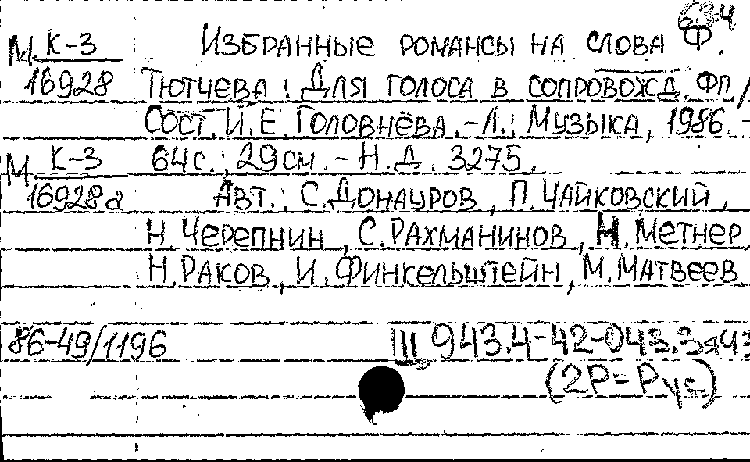 634
М К-3 Избранные романсы на слова Ф.
16928 Тютчева: Для голоса в сопровожд. фп /
Сост. И.Е. Головнёва. -Л.: Музыка, 1986. -
М К-3 64с.; 29см. - Н.Д. 3275.
16928а Авт.: С.Донауров, П.Чайковский,
Н.Черепнин, С.Рахманинов, Н.Метнер,
Н.Раков, И.Финкельштейн, М.Матвеев
86-49/1196 Ш 943.4-42-043.3я43
(2Р=Рус)